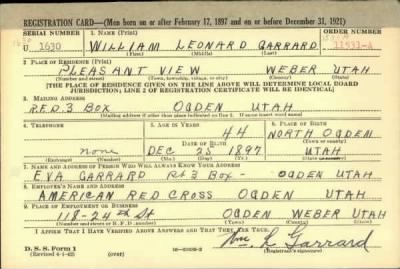 REGISTRATION CARD—(Men born on or after February 17, 1897 and on or before December 31, 1921)
SERIAL NUMBER 1. NAME (Print) ORDER NUMBER
U 1630 WILLIAM LEONARD GARRARD 11531-A
(First) (Middle) (Last)
2. PLACE OF RESIDENCE (Print)
PLEASANT VIEW WEBER UTAH
(Number and street) (Town, township, village, or city) (County) (State)
[THE PLACE OF RESIDENCE GIVEN ON THE LINE ABOVE WILL DETERMINE LOCAL BOARD
JURISDICTION; LINE 2 OF REGISTRATION CERTIFICATE WILL BE IDENTICAL]
3. MAILING ADDRESS
R.F.D. 3 Box OGDEN UTAH
[Mailing address if other than place indicated on line 2. If same insert word same]
4. TELEPHONE 5. AGE IN YEARS 6. PLACE OF BIRTH
44 NORTH OGDEM
DATE OF BIRTH (Town or county)
none DEC 25 1897 UTAH
(Exchange) (Number) (Mo.) (Day) (Yr.) (State or country)
7. NAME AND ADDRESS OF PERSON WHO WILL ALWAYS KNOW YOUR ADDRESS
EVA GARRARD Rt 3 Box - OGDEN UTAH
8. EMPLOYER'S NAME AND ADDRESS
AMERICAN RED CROSS OGDEN UTAH
9. PLACE OF EMPLOYMENT OR BUSINESS
118-24th St OGDEN WEBER UTAH
(Number and street or R. F. D. number) (Town) (County) (State)
I AFFIRM THAT I HAVE VERIFIED ABOVE ANSWERS AND THAT THEY ARE TRUE.
D. S. S. Form 1
(Revised 4-1-42) (over) Wm. L Garrard
(Registrant's signature)